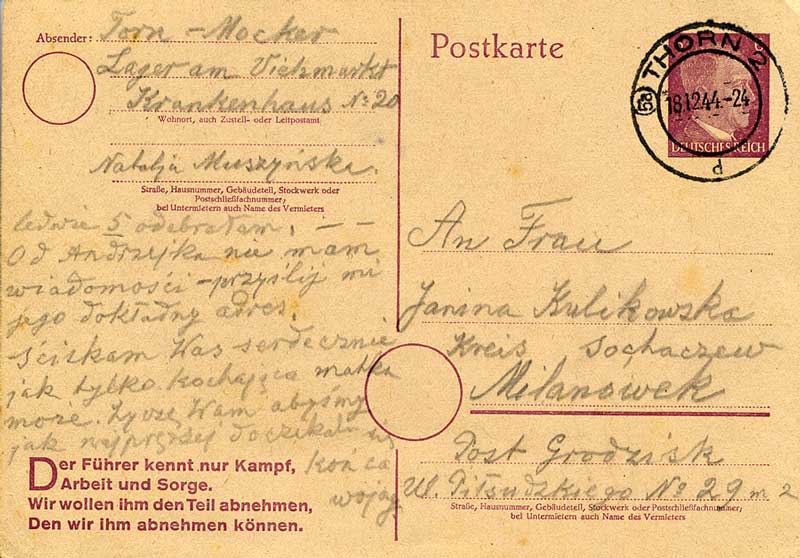 Absender: Torn - Mocker
Lager am Viehmarkt
Krankenhaus № 20
Wohnort, auch Zustell- oder Leitpostamt
Natalja Muszyńska.
Straße, Hausnummer, Gebäudeteil, Stockwerk oder
Postschließfachnummer;
bei Untermietern auch Name des Vermieters
ledwie 5 odebrałam. — —
Od Andrzejka nie mam
wiadomości - przyślij mi
jego dokładny adres.
Ściskam Was serdecznie
jak tylko kochająca matka
może. Życzę Wam abyśmy
jak najprędzej doczekali się
końca
wojny
Der Führer kennt nur Kampf,
Arbeit und Sorge.
Wir wollen ihm den Teil abnehmen,
Den wir ihm abnehmen können.
Postkarte
(5a) THORN 2
18.12.44.-24
d
DEUTSCHES REICH
An Frau
Janina Kulikowska
Kreis Sochaczew
Milanówek
Post Grodzisk
Ul. Piłsudzkiego № 29 m 2
Straße, Hausnummer, Gebäudeteil, Stockwerk oder Postschließfachnummer;
bei Untermietern auch Name des Vermieters